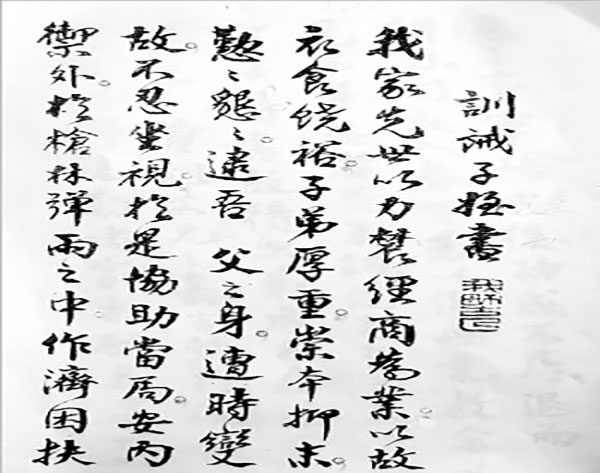 訓誡子姪書
我家先世以力農經商為業以故
衣食饒裕子弟厚重崇本抑末
懃〻懇〻逮吾 父之身遭時變
故不忍坐視於是協助當局安内
禦外於槍林彈雨之中作濟困扶